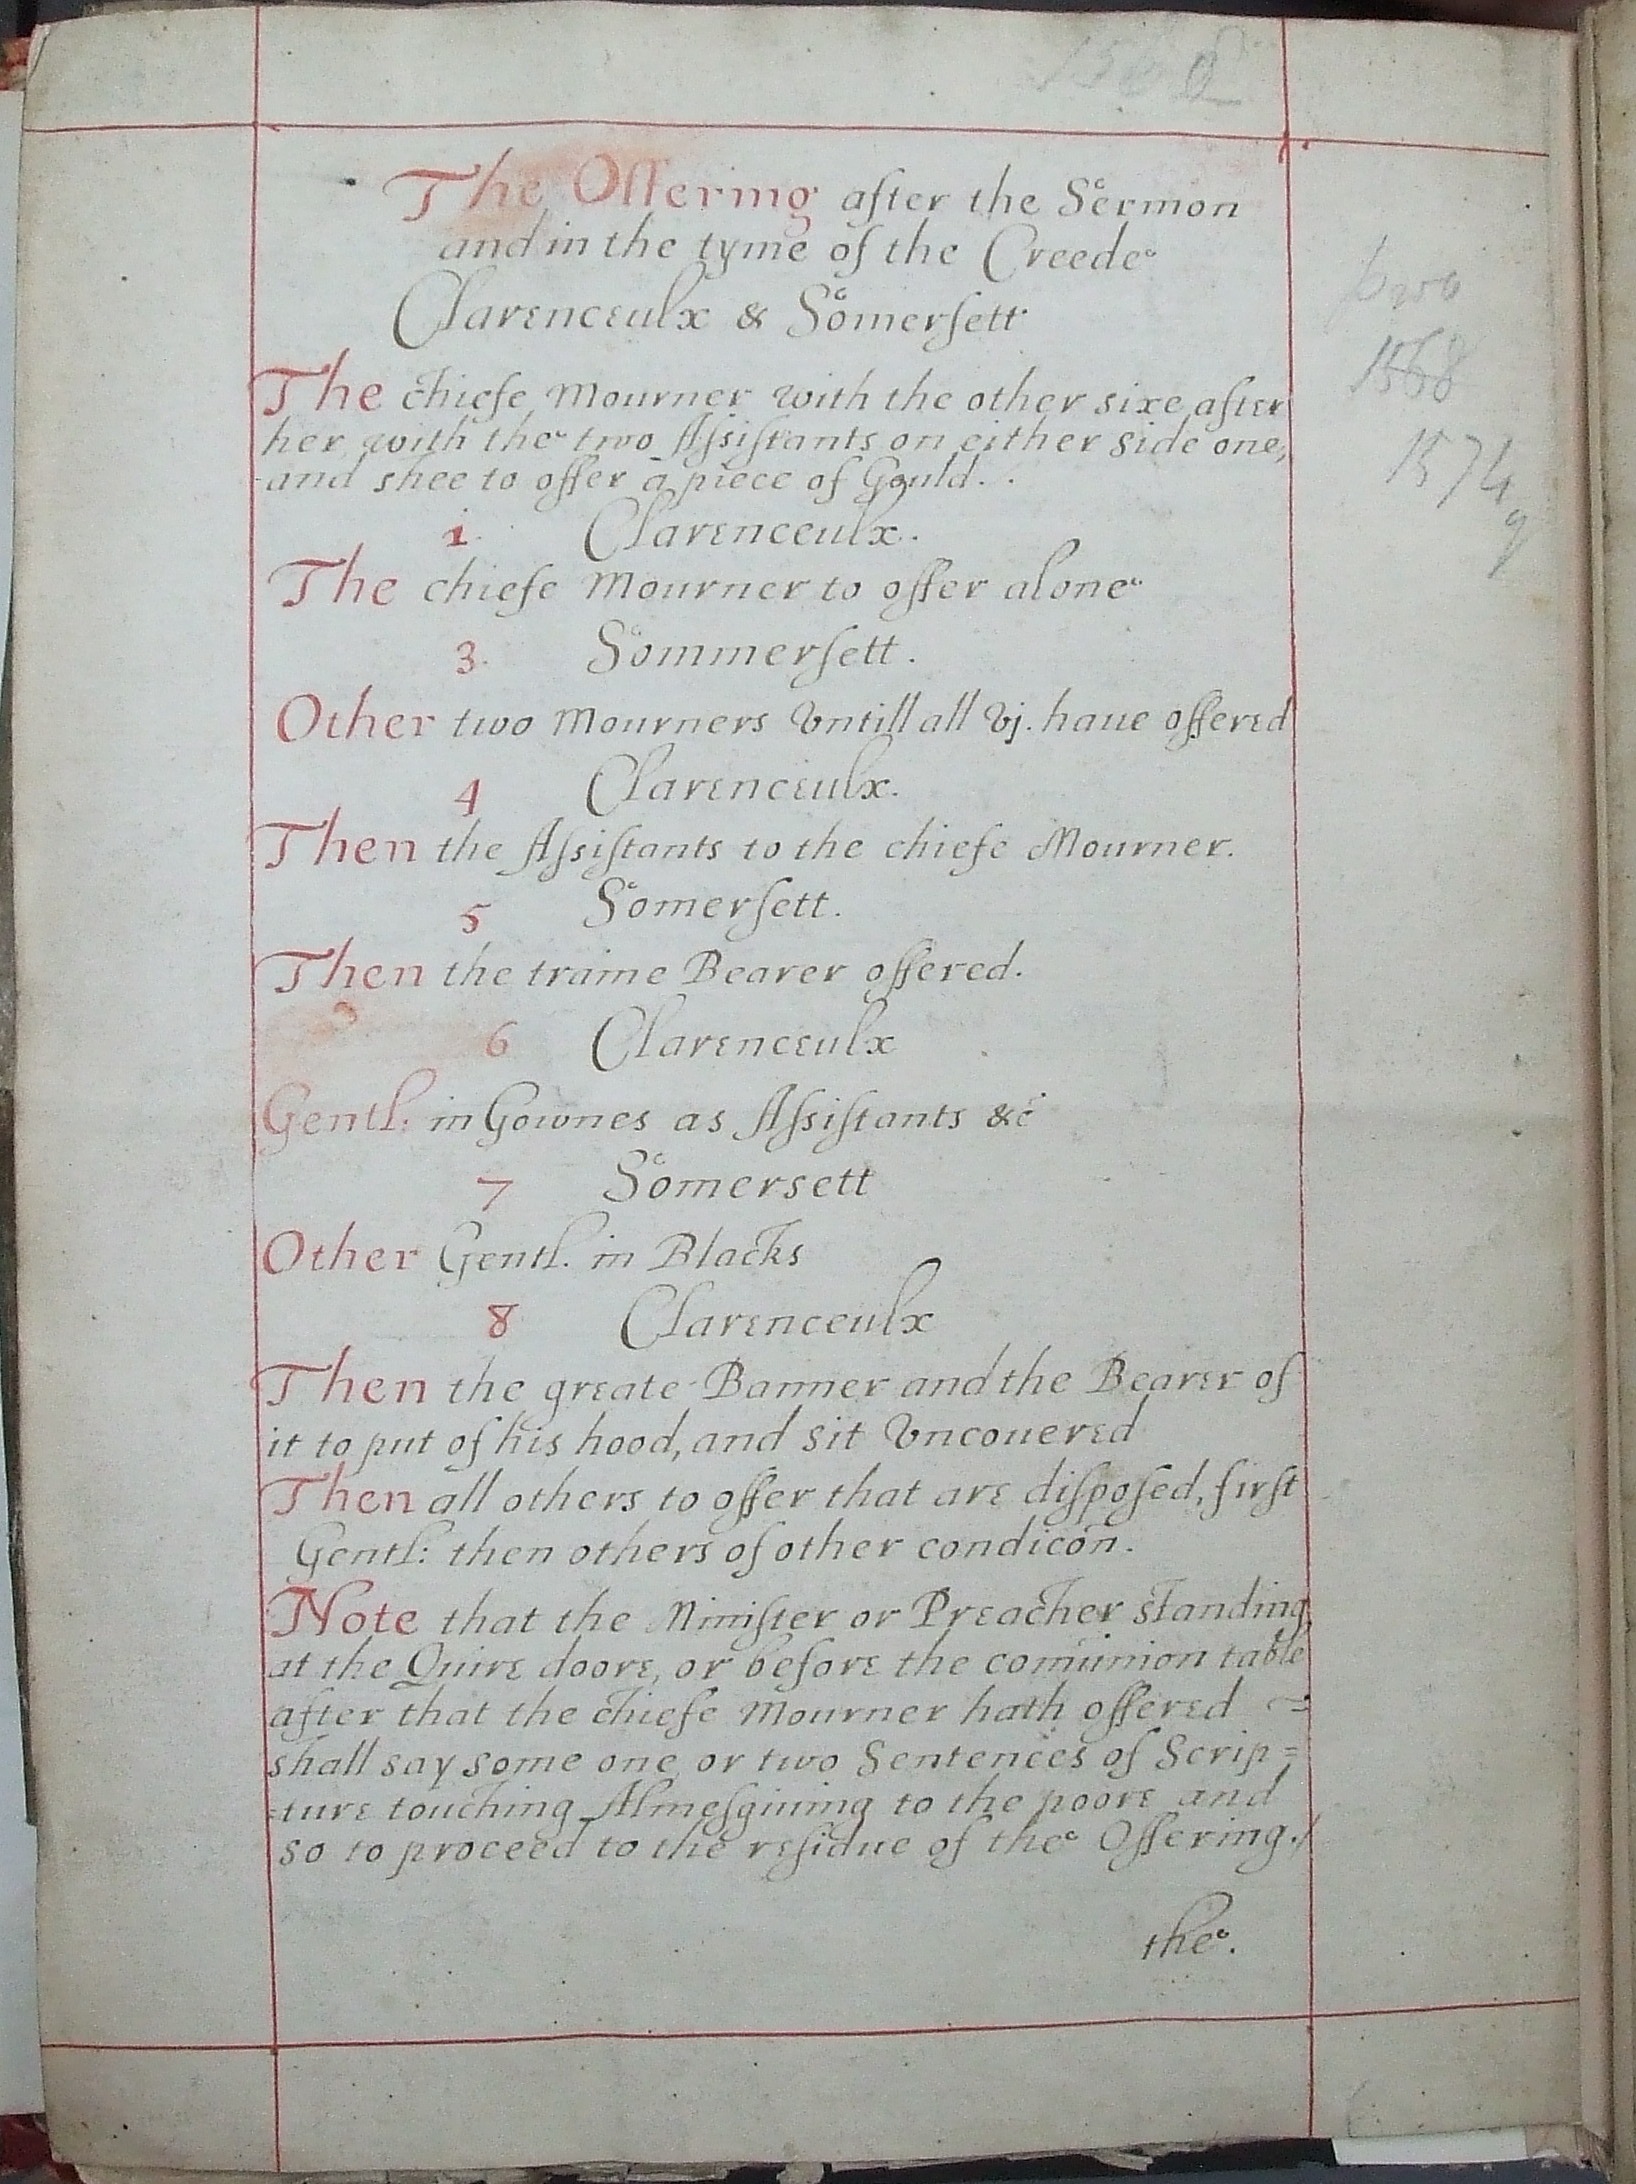 The Offering after the Sermon
and in the tyme of the Creede
Clarenceulx & Somersett
The chiefe Mourner with the other sixe after
her with the two Assistants on either side one,
and shee to offer a piece of Gould.
1. Clarenceulx.
The chiefe Mourner to offer alone
3. Sommersett.
Other two Mourners Vntill all Vj. haue offered
4 Clarenceulx.
Then the Assistants to the chiefe Mourner.
5 Somersett.
Then the traine Bearer offered.
6 Clarenceulx
Gentl: in Gownes as Assistants &c
7 Somersett
Other Gentl. in Blacks
8 Clarenceulx
Then the greate Banner and the Bearer of
it to put of his hood, and sit Vncouered
Then all others to offer that are disposed, first
Gentl: then others of other condicōn.
Note that the Minister or Preacher standing
at the Quire doore, or before the comūnion table
after that the chiefe Mourner hath offered
shall say some one or two Sentences of Scrip=
=ture touching Almesgiuing to the poore and
so to proceed to the residue of the Offering./
the.
1568
1574